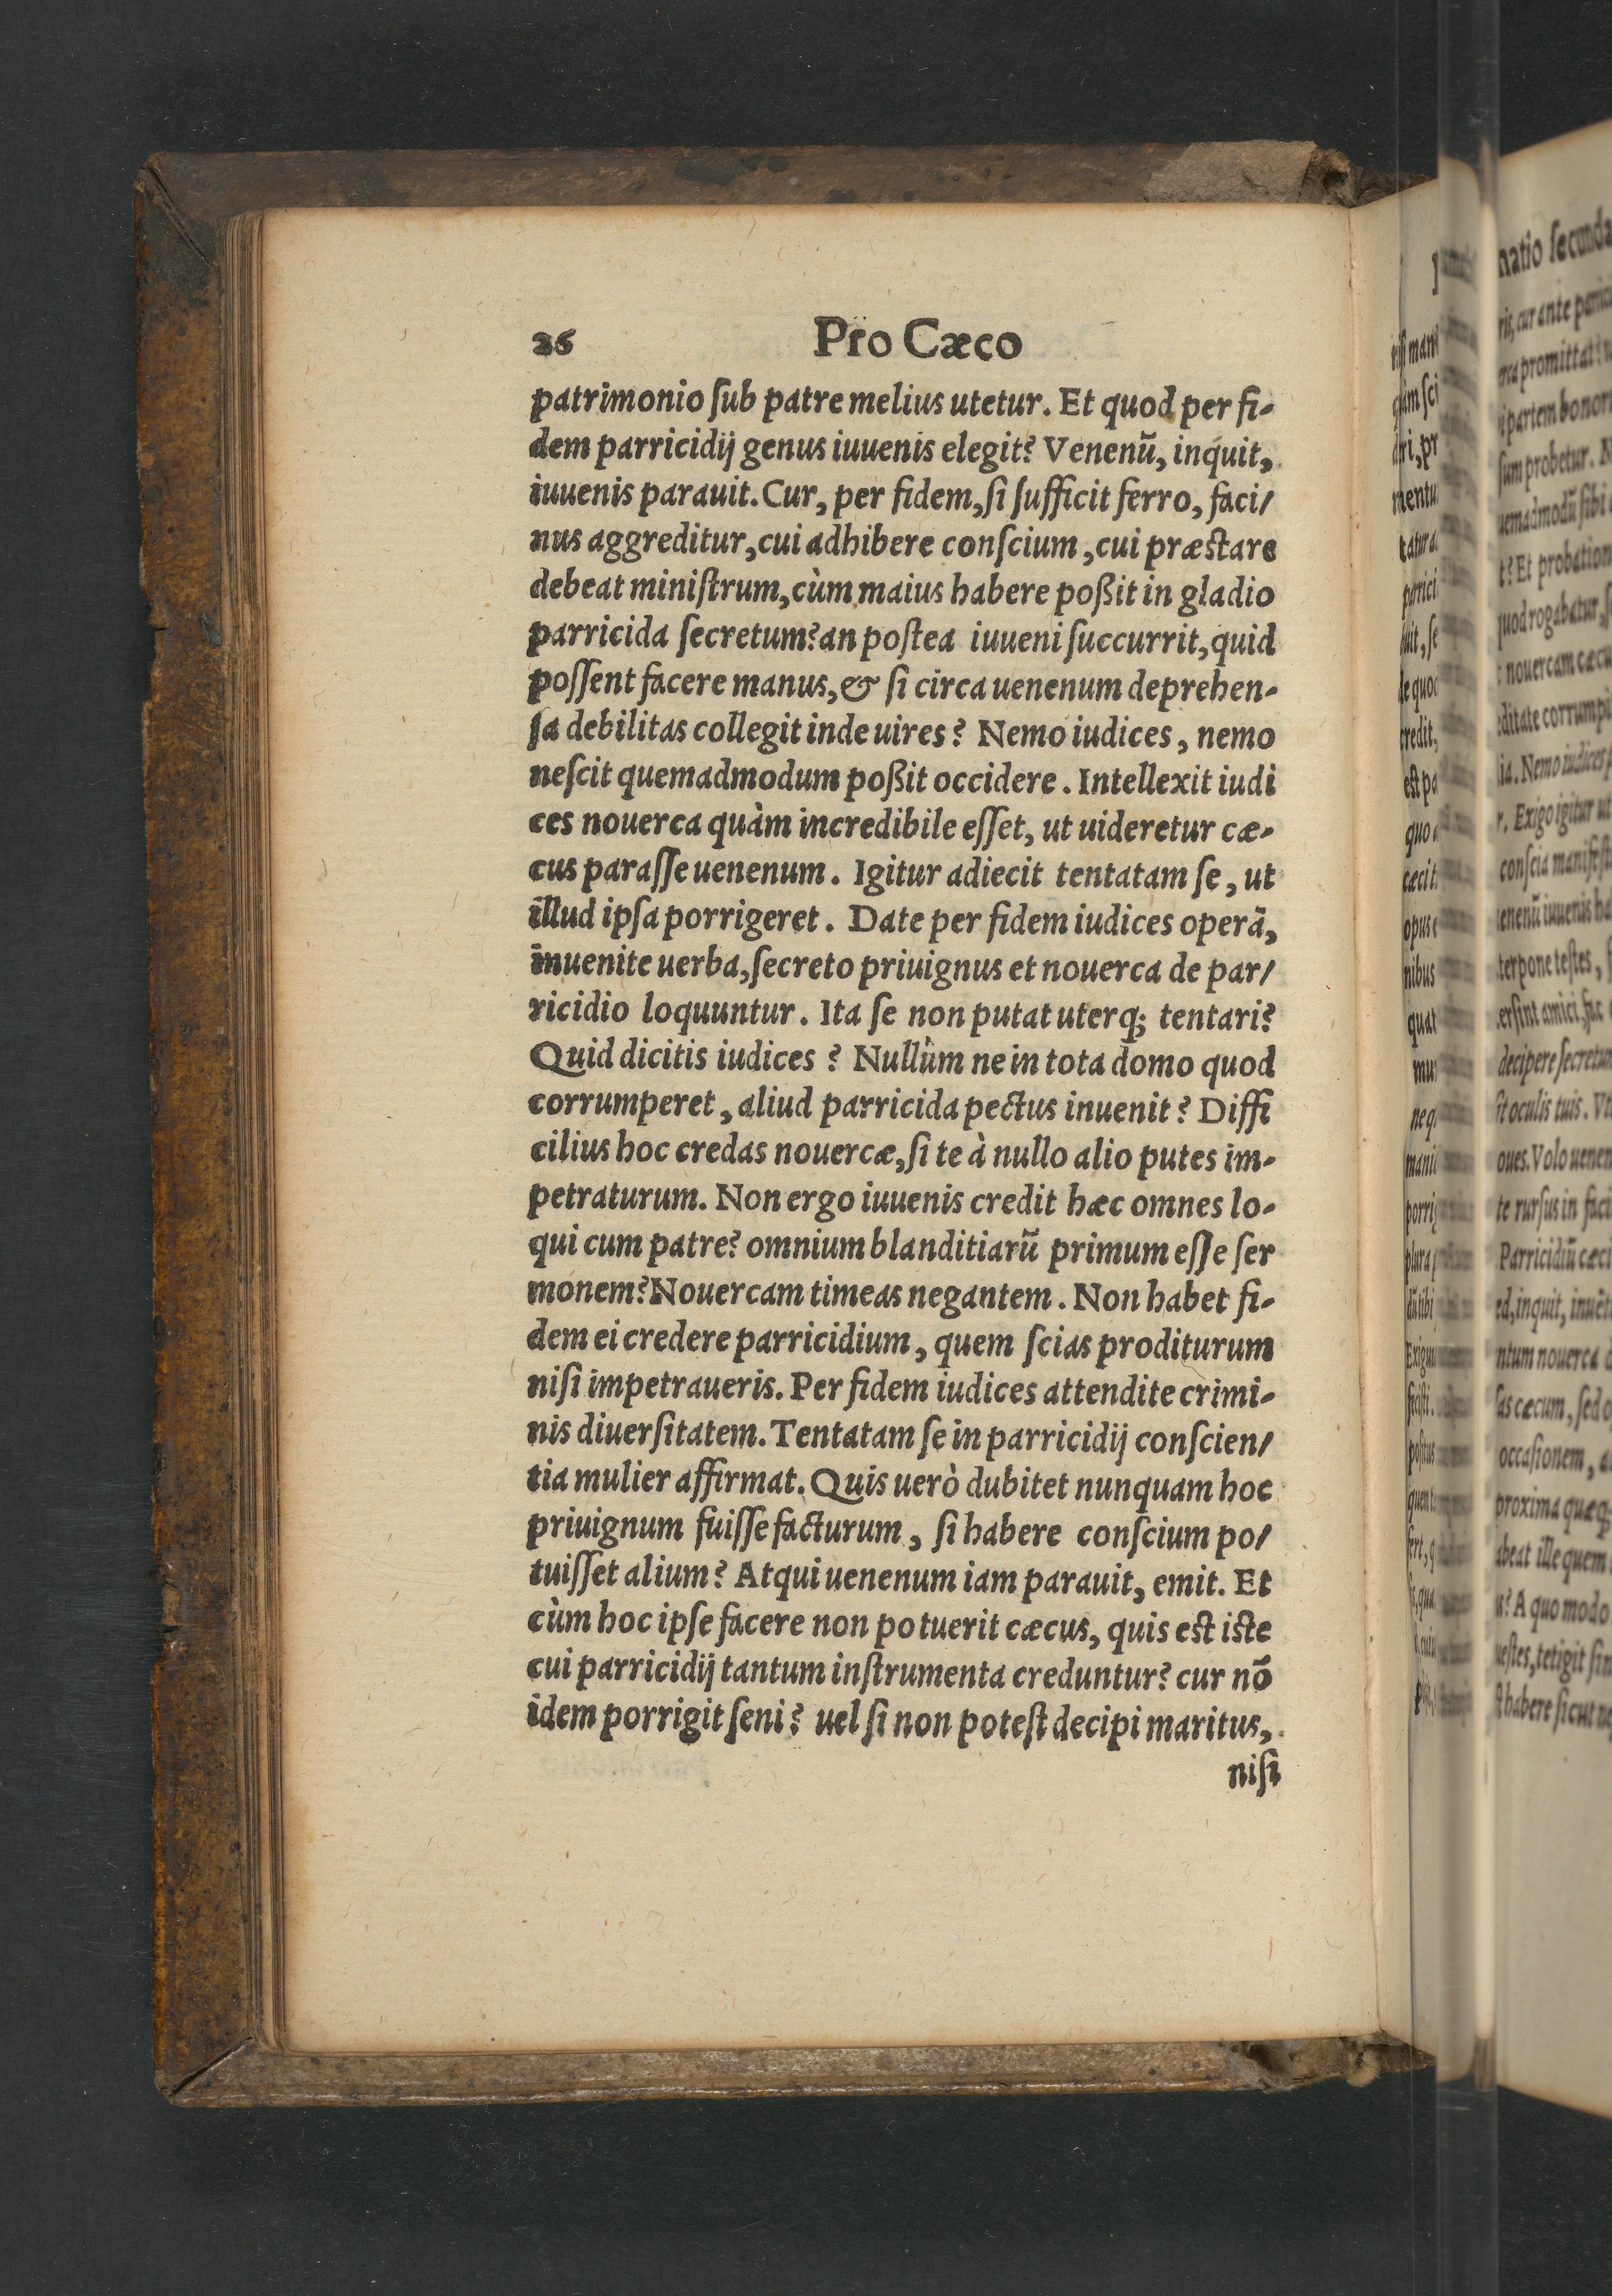 26 Pro Cæco
patrimonio ſub patre melius utetur. Et quod per fi-
dem parricidij genus iuuenis elegit? Venenū, inquit,
iuuenis parauit. Cur, per fidem, ſi ſufficit ferro, faci/
nus aggreditur, cui adhibere conſcium, cui præſtare
debeat miniſtrum, cùm maius habere poßit in gladio
parricida ſecretum? an poſtea iuueni ſuccurrit, quid
poſſent facere manus, & ſi circa uenenum deprehen-
ſa debilitas collegit inde uires? Nemo iudices, nemo
neſcit quemadmodum poßit occidere. Intellexit iudi
ces nouerca quàm incredibile eſſet, ut uideretur cæ-
cus paraſſe uenenum. Igitur adiecit tentatam ſe, ut
illud ipſa porrigeret. Date per fidem iudices operā,
inuenite uerba, ſecreto priuignus et nouerca de par/
ricidio loquuntur. Ita ſe non putat uterq; tentari?
Quid dicitis iudices? Nullùm ne in tota domo quod
corrumperet, aliud parricida pectus inuenit? Diffi
cilius hoc credas nouercæ, ſi te à nullo alio putes im-
petraturum. Non ergo iuuenis credit hæc omnes lo-
qui cum patre? omnium blanditiarū primum eſſe ſer
monem? Nouercam timeas negantem. Non habet fi-
dem ei credere parricidium, quem ſcias proditurum
niſi impetraueris. Per fidem iudices attendite crimi-
nis diuerſitatem. Tentatam ſe in parricidij conſcien/
tia mulier affirmat. Quis uerò dubitet nunquam hoc
priuignum fuiſſe facturum, ſi habere conſcium po/
tuiſſet alium? Atqui uenenum iam parauit, emit. Et
cùm hoc ipſe facere non potuerit cæcus, quis eſt iſte
cui parricidij tantum inſtrumenta creduntur? cur nō
idem porrigit ſeni? uel ſi non poteſt decipi maritus,
niſi